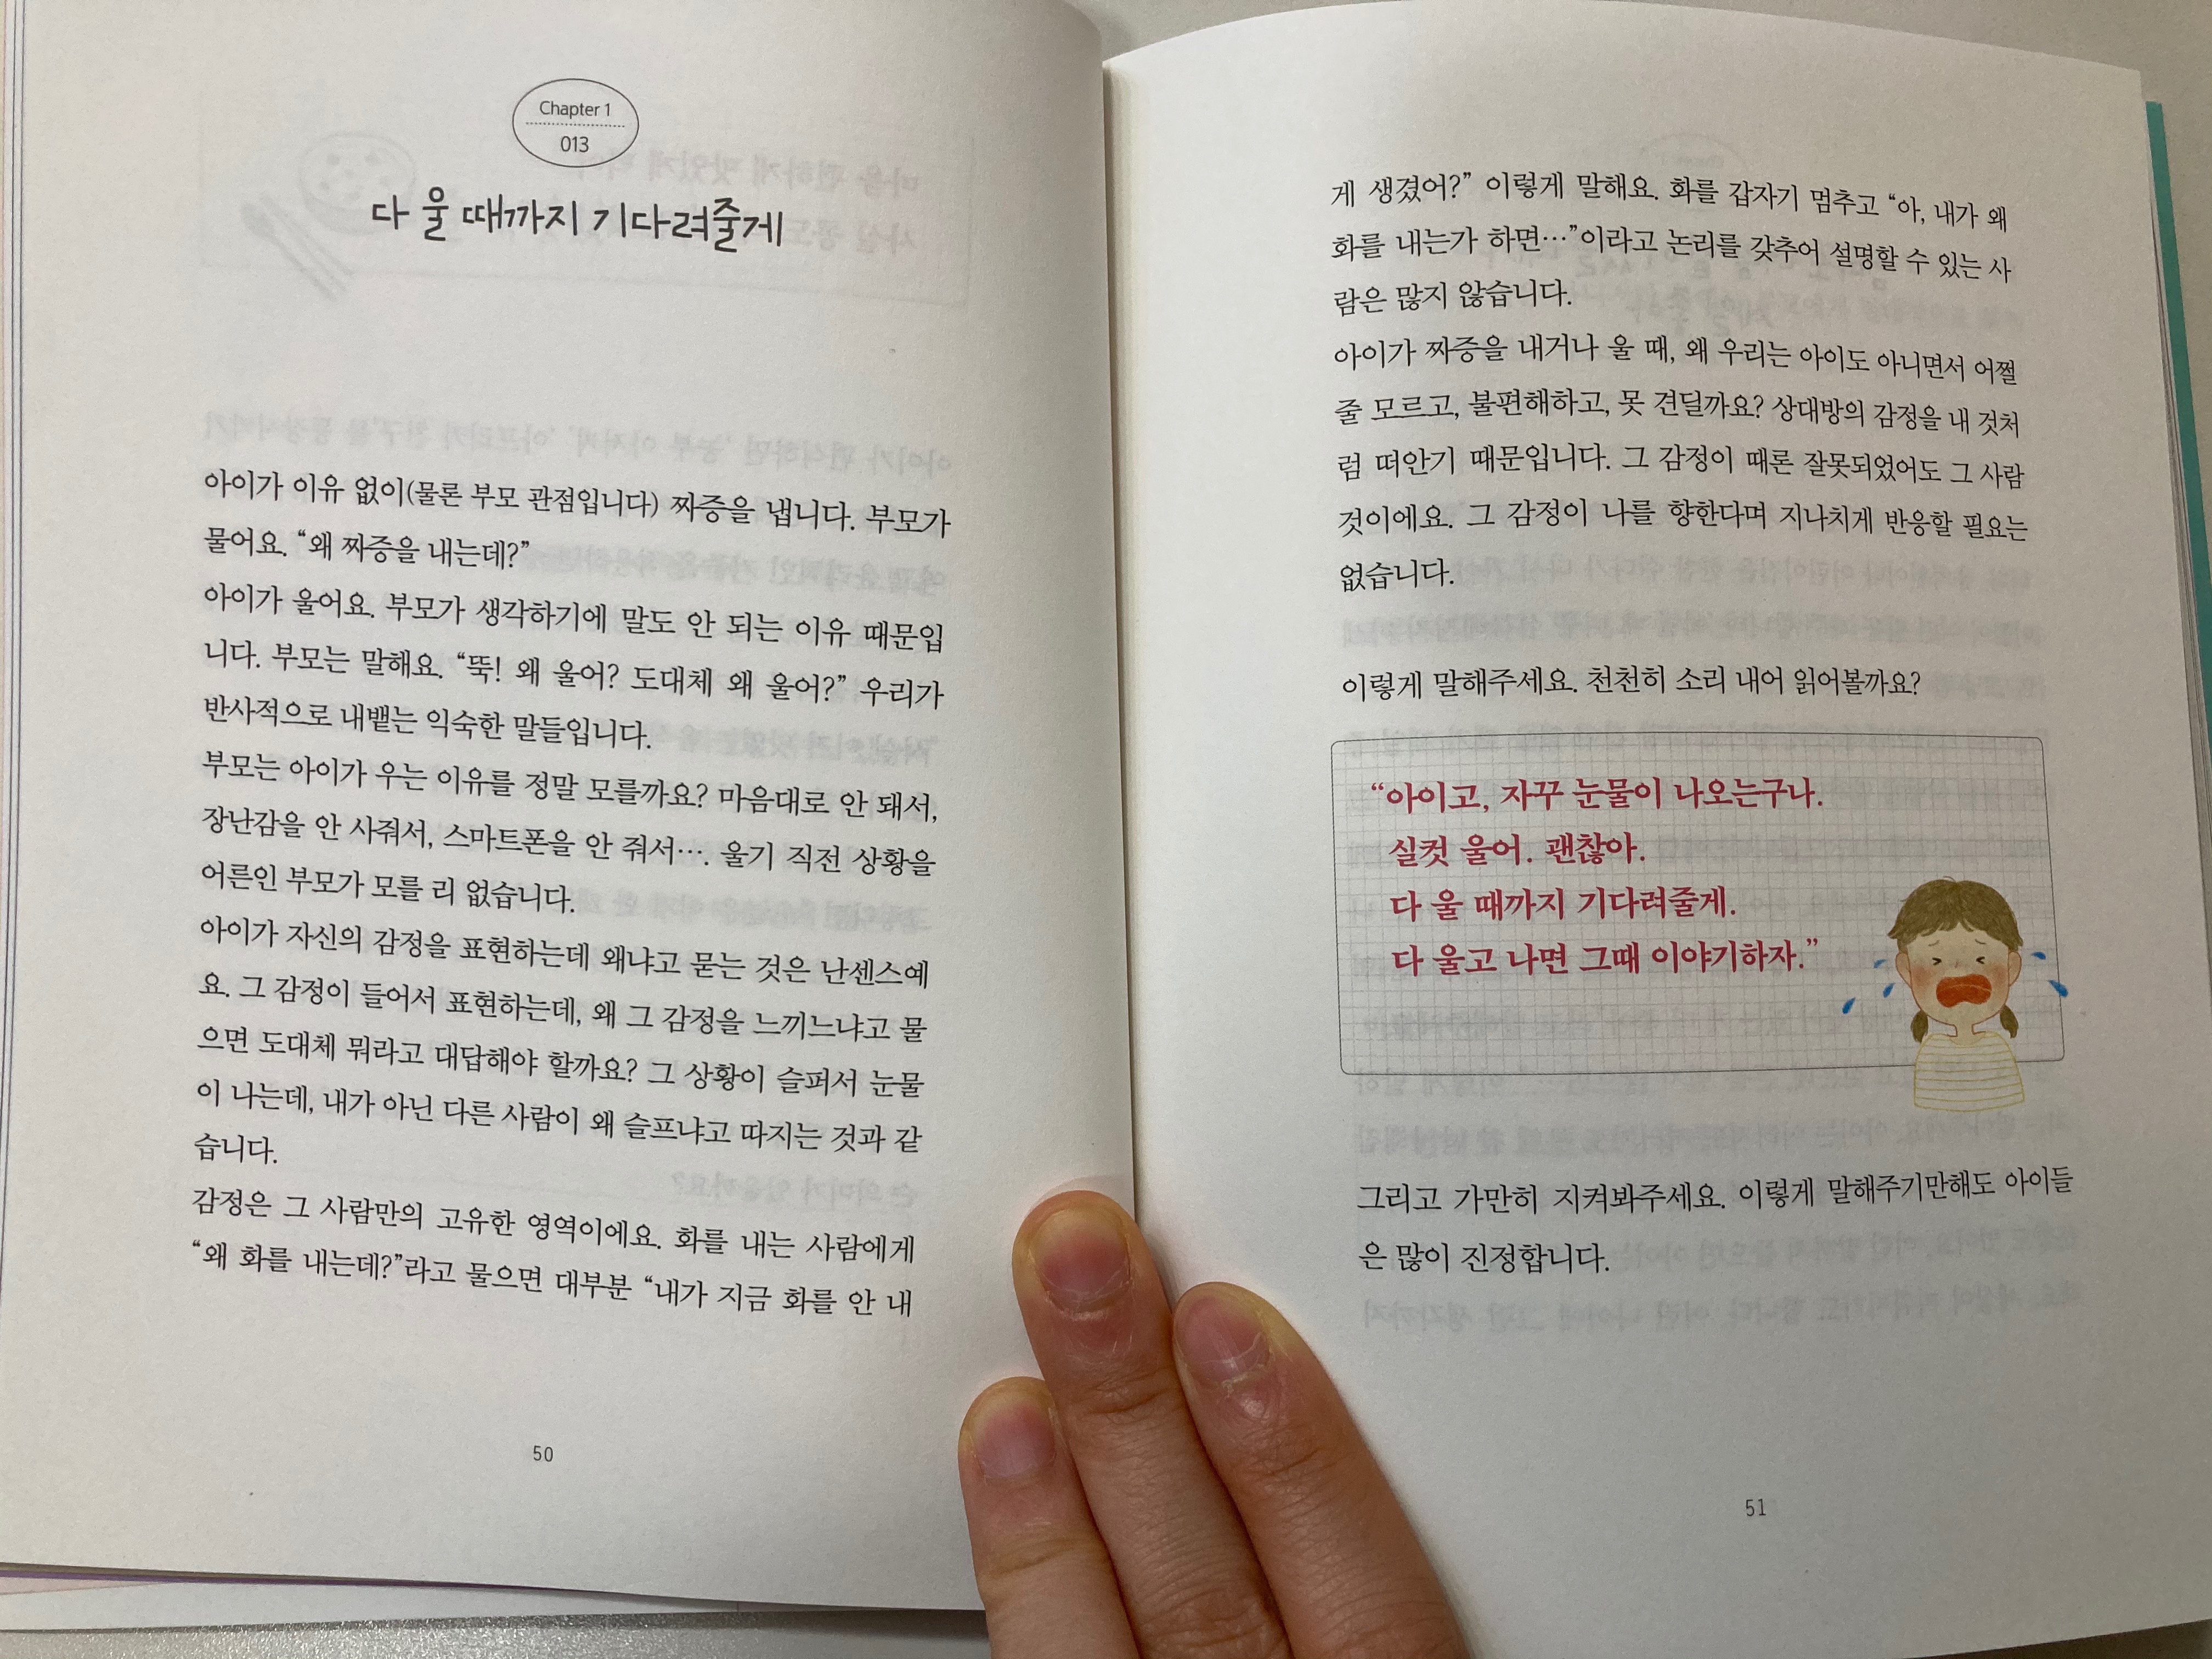 Chapter 1
013
다 울 때까지 기다려줄게
아이가 이유 없이(물론 부모 관점입니다) 짜증을 냅니다. 부모가
물어요. “왜 짜증을 내는데?”
아이가 울어요. 부모가 생각하기에 말도 안 되는 이유 때문입
니다. 부모는 말해요. “뚝! 왜 울어? 도대체 왜 울어?” 우리가
반사적으로 내뱉는 익숙한 말들입니다.
부모는 아이가 우는 이유를 정말 모를까요? 마음대로 안 돼서,
장난감을 안 사줘서, 스마트폰을 안 줘서…. 울기 직전 상황을
어른인 부모가 모를 리 없습니다.
아이가 자신의 감정을 표현하는데 왜냐고 묻는 것은 난센스예
요. 그 감정이 들어서 표현하는데, 왜 그 감정을 느끼느냐고 물
으면 도대체 뭐라고 대답해야 할까요? 그 상황이 슬퍼서 눈물
이 나는데, 내가 아닌 다른 사람이 왜 슬프냐고 따지는 것과 같
습니다.
감정은 그 사람만의 고유한 영역이에요. 화를 내는 사람에게
“왜 화를 내는데?”라고 물으면 대부분 “내가 지금 화를 안 내
50
게 생겼어?” 이렇게 말해요. 화를 갑자기 멈추고 “아, 내가 왜
화를 내는가 하면…”이라고 논리를 갖추어 설명할 수 있는 사
람은 많지 않습니다.
아이가 짜증을 내거나 울 때, 왜 우리는 아이도 아니면서 어쩔
줄 모르고, 불편해하고, 못 견딜까요? 상대방의 감정을 내 것처
럼 떠안기 때문입니다. 그 감정이 때론 잘못되었어도 그 사람
것이에요. 그 감정이 나를 향한다며 지나치게 반응할 필요는
없습니다.
이렇게 말해주세요. 천천히 소리 내어 읽어볼까요?
“아이고, 자꾸 눈물이 나오는구나.
실컷 울어. 괜찮아.
다 울 때까지 기다려줄게.
다 울고 나면 그때 이야기하자.”
그리고 가만히 지켜봐주세요. 이렇게 말해주기만해도 아이들
은 많이 진정합니다.
51